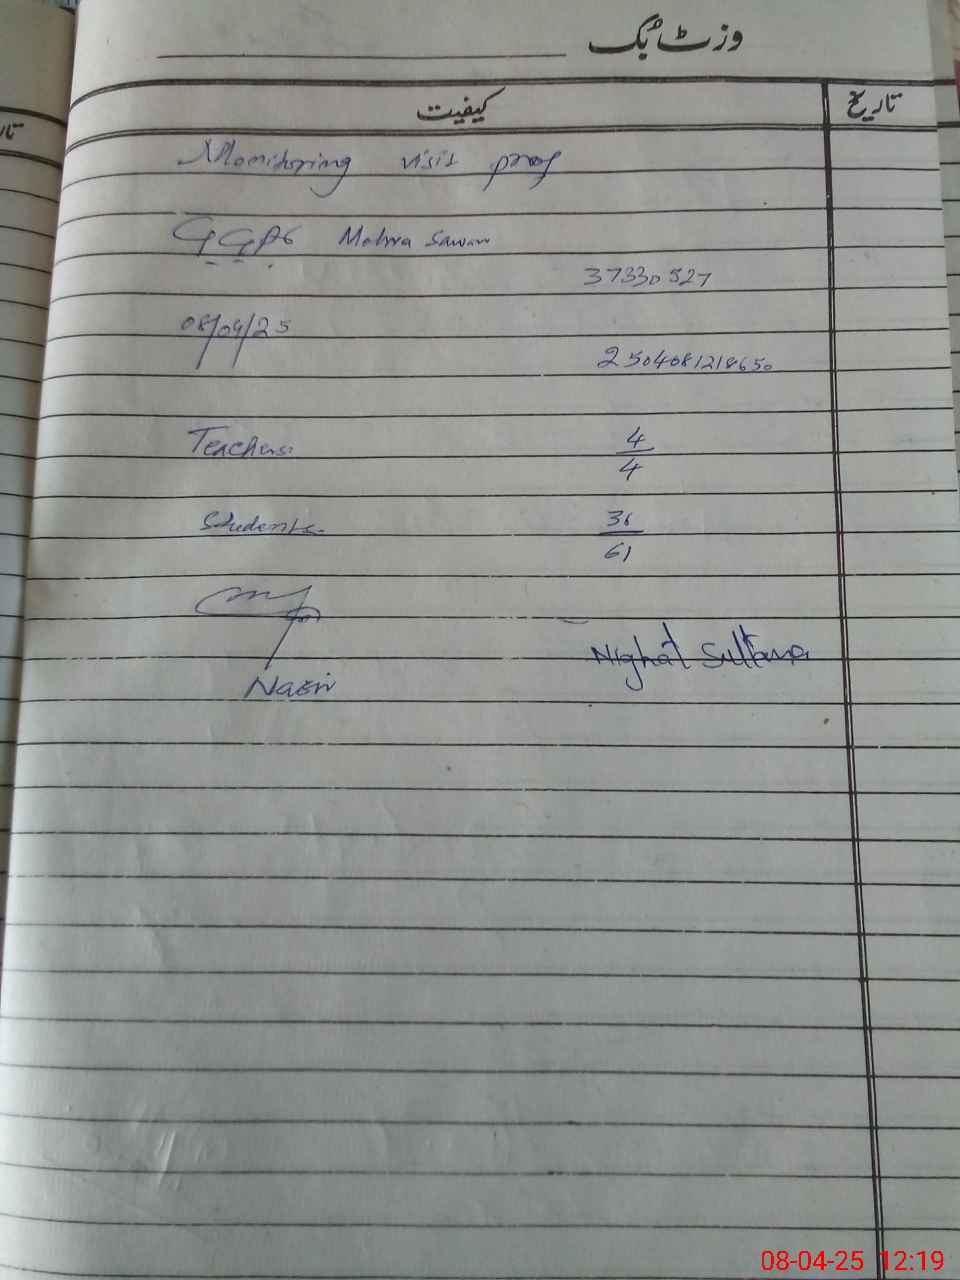 وزٹ بُک
کیفیت
تاریخ
Monitoring visit prof
GGPS Mohra Sawan
37330527
08/04/25
2504081218650
Teachers
4
4
Students
36
61
Nazir
Nighat Sultana
08-04-25 12:19